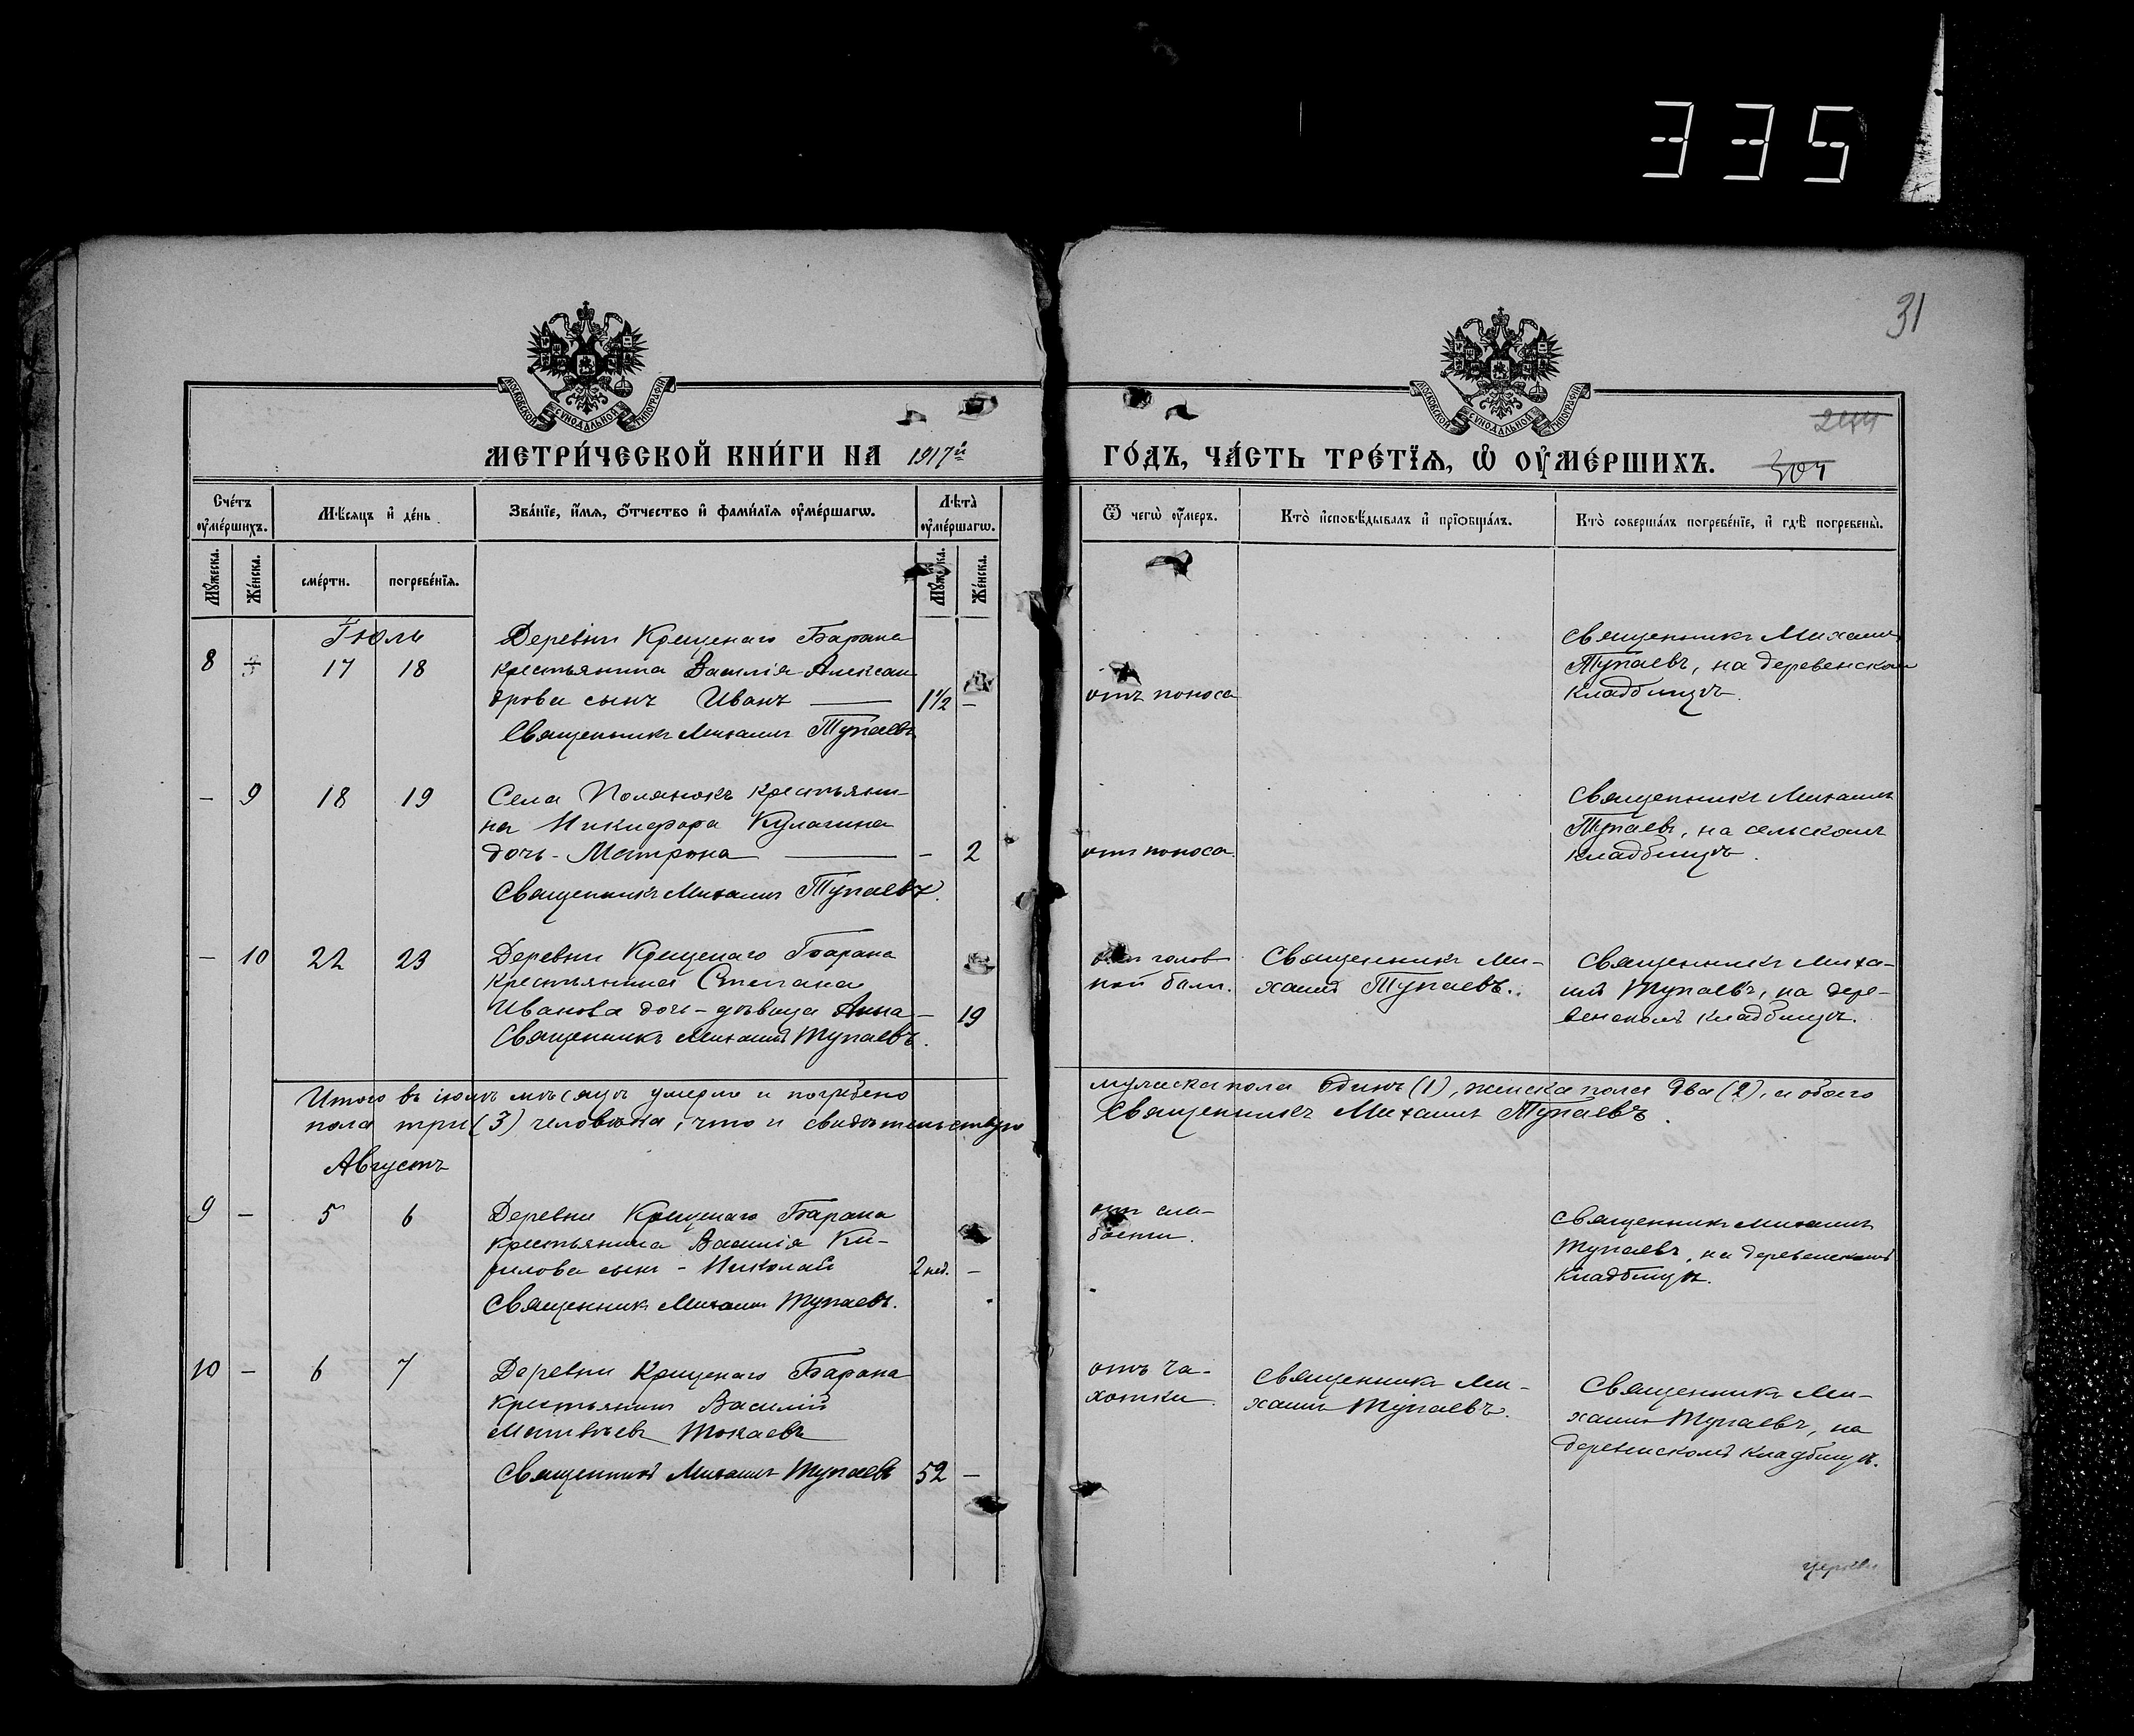 335
31
МОСКОВСКОЙ СѴНОДАЛЬНОЙ ТИПОГРАФІИ
МОСКОВСКОЙ СѴНОДАЛЬНОЙ ТИПОГРАФІИ
МЕТРИ́ЧЕСКОЙ КНИ́ГИ НА 1917й ГО́ДЪ, ЧА́СТЬ ТРЕ́ТЇѦ, Ѽ ОУ҆МЕ́РШИХЪ.
Сче́тъ оу҆ме́ршихъ.
Мѣ́сяцъ и҆ де́нь
Зва́нїе, и҆́мѧ, ѻ҆́тчество и҆ фами́лїѧ оу҆ме́ршагѡ.
Лѣ́та̀ оу҆ме́ршагѡ.
Ѿ чегѡ̀ оу҆́меръ.
Кто̀ и҆сповѣ́дывалъ и҆ прїѡбща́лъ.
Кто̀ соверша́лъ погребе́нїе, и҆ гдѣ̀ погребены̀.
Мꙋ́жеска.
Же́нска.
сме́рти.
погребе́нїѧ.
Мꙋ́жеска.
Же́нска.
Іюль
8 17 18
Деревни Крещенаго Барана
крестьянина Василія Алексан
дрова сынъ Иванъ — 1½ —
Священникъ Михаилъ Тупаевъ
отъ поноса
Священникъ Михаилъ
Тупаевъ, на деревенском
кладбищѣ.
— 9 18 19
Села Полянокъ крестьяни-
на Никифора Кулагина
дочь - Матрона — — 2
Священникъ Михаилъ Тупаевъ.
отъ поноса.
Священникъ Михаилъ
Тупаевъ, на сельскомъ
кладбищѣ.
— 10 22 23
Деревни Крещенаго Барана
крестьянина Степана
Иванова дочь - дѣвица Анна — 19
Священникъ Михаилъ Тупаевъ.
от голов
ной боли.
Священникъ Ми-
хаилъ Тупаевъ.
Священникъ Миха-
илъ Тупаевъ, на дере-
венскомъ кладбищѣ.
Итого въ іюлѣ мѣсяцѣ умерло и погребено
мужеска пола одинъ (1), женска пола два (2), а обоего
пола три (3) человѣка, что и свидѣтельствую
Священникъ Михаилъ Тупаевъ.
Августъ
9 — 5 6
Деревни Крещенаго Барана
крестьянина Василія Ки-
рилова сынъ - Николай 2 нед. —
Священникъ Михаилъ Тупаевъ.
отъ сла-
бости.
Священникъ Михаилъ
Тупаевъ, на деревенскомъ
кладбищѣ.
10 — 6 7
Деревни Крещенаго Барана
крестьянинъ Василій
Матвѣевъ Токаевъ
Священникъ Михаилъ Тупаевъ 52 —
отъ ча-
хотки.
Священникъ Ми-
хаилъ Тупаевъ.
Священникъ Ми-
хаилъ Тупаевъ, на
деревенскомъ кладбищѣ.